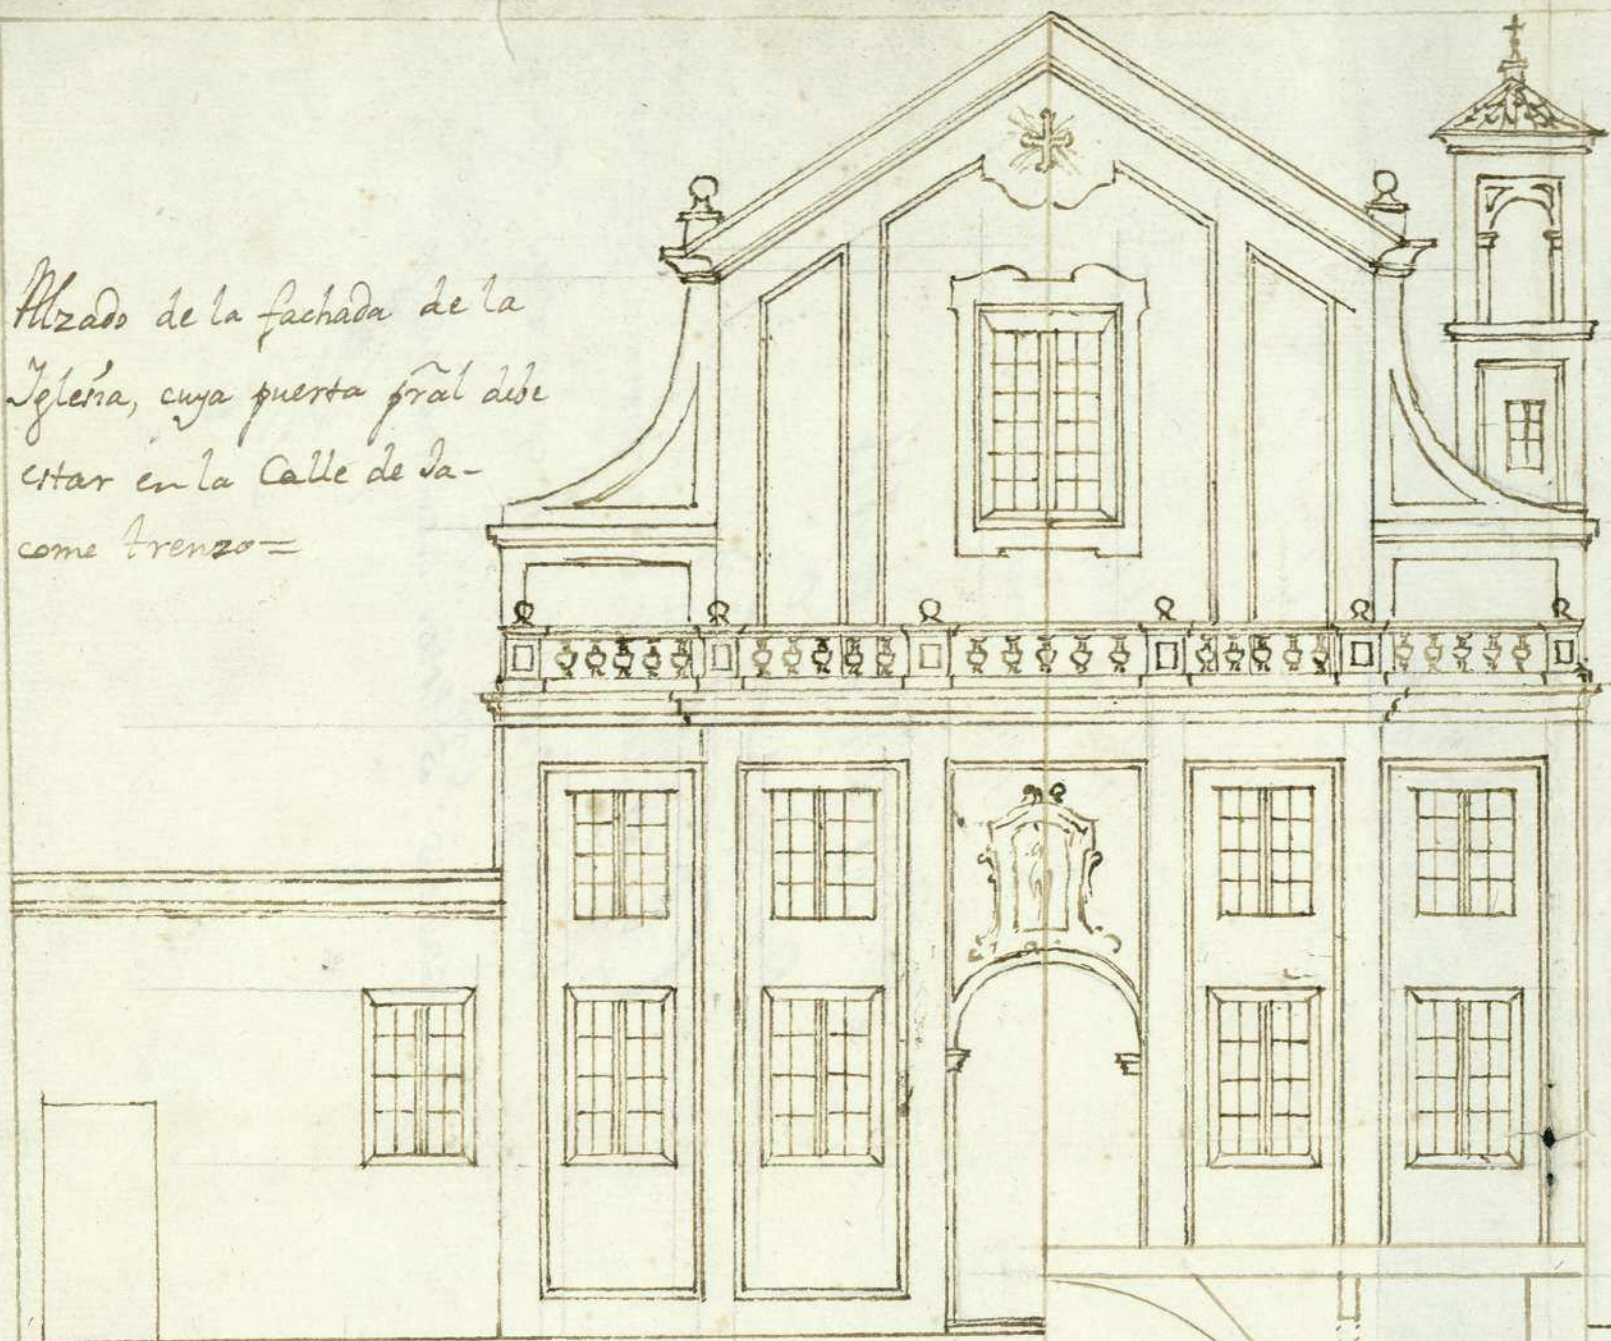 Alzado de la fachada de la
Iglesia, cuya puerta pral debe
estar en la Calle de Ja-
come trenzo=